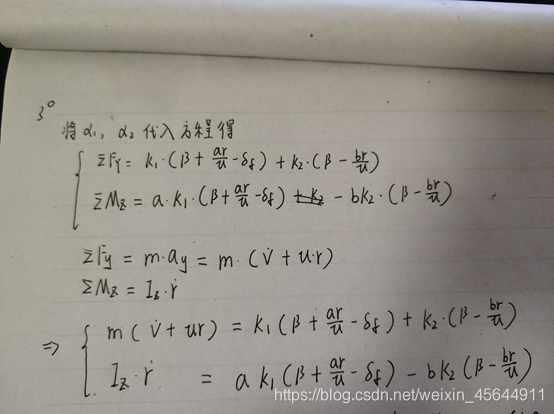 3°
将α₁, α₂代入方程得
ΣFy = k₁·(β + ar/u - δf) + k₂·(β - br/u)
ΣMz = a·k₁·(β + ar/u - δf) - bk₂·(β - br/u)
ΣFy = m·ay = m·(v̇ + u·r)
ΣMz = Iz·ṙ
⇒ { m(v̇ + ur) = k₁(β + ar/u - δf) + k₂·(β - br/u)
Iz·ṙ = ak₁(β + ar/u - δf) - bk₂(β - br/u)
https://blog.csdn.net/weixin_45644911